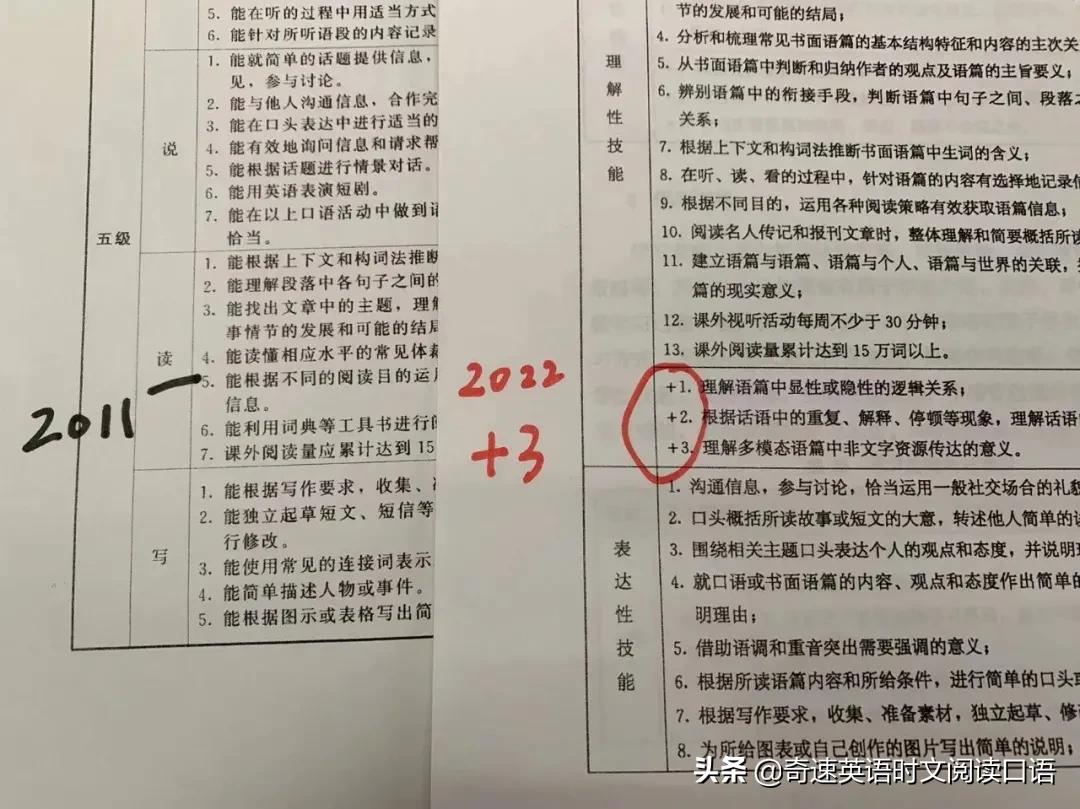 5. 能在听的过程中用适当方式
6. 能针对所听语段的内容记录
说
1. 能就简单的话题提供信息，
见，参与讨论。
2. 能与他人沟通信息，合作完
3. 能在口头表达中进行适当的
4. 能有效地询问信息和请求帮
5. 能根据话题进行情景对话。
6. 能用英语表演短剧。
7. 能在以上口语活动中做到语
恰当。
五级
读
1. 能根据上下文和构词法推断
2. 能理解段落中各句子之间的
3. 能找出文章中的主题，理解
事情节的发展和可能的结局
4. 能读懂相应水平的常见体裁
5. 能根据不同的阅读目的运用
信息。
6. 能利用词典等工具书进行阅
7. 课外阅读量应累计达到 15
2011
写
1. 能根据写作要求，收集、准
2. 能独立起草短文、短信等
行修改。
3. 能使用常见的连接词表示
4. 能简单描述人物或事件。
5. 能根据图示或表格写出简
理解性技能
节的发展和可能的结局；
4. 分析和梳理常见书面语篇的基本结构特征和内容的主次关
5. 从书面语篇中判断和归纳作者的观点及语篇的主旨要义；
6. 辨别语篇中的衔接手段，判断语篇中句子之间、段落之
关系；
7. 根据上下文和构词法推断书面语篇中生词的含义；
8. 在听、读、看的过程中，针对语篇的内容有选择地记录信
9. 根据不同目的，运用各种阅读策略有效获取语篇信息；
10. 阅读名人传记和报刊文章时，整体理解和简要概括所读
11. 建立语篇与语篇、语篇与个人、语篇与世界的关联，
篇的现实意义；
12. 课外视听活动每周不少于 30 分钟；
13. 课外阅读量累计达到 15 万词以上。
2022
+3
+1. 理解语篇中显性或隐性的逻辑关系；
+2. 根据话语中的重复、解释、停顿等现象，理解话语
+3. 理解多模态语篇中非文字资源传达的意义。
表达性技能
1. 沟通信息，参与讨论，恰当运用一般社交场合的礼貌
2. 口头概括所读故事或短文的大意，转述他人简单的谈
3. 围绕相关主题口头表达个人的观点和态度，并说明理
4. 就口语或书面语篇的内容、观点和态度作出简单的
明理由；
5. 借助语调和重音突出需要强调的意义；
6. 根据所读语篇内容和所给条件，进行简单的口头或
7. 根据写作要求，收集、准备素材，独立起草、修改
8. 为所给图表或自己创作的图片写出简单的说明；
头条 @奇速英语时文阅读口语